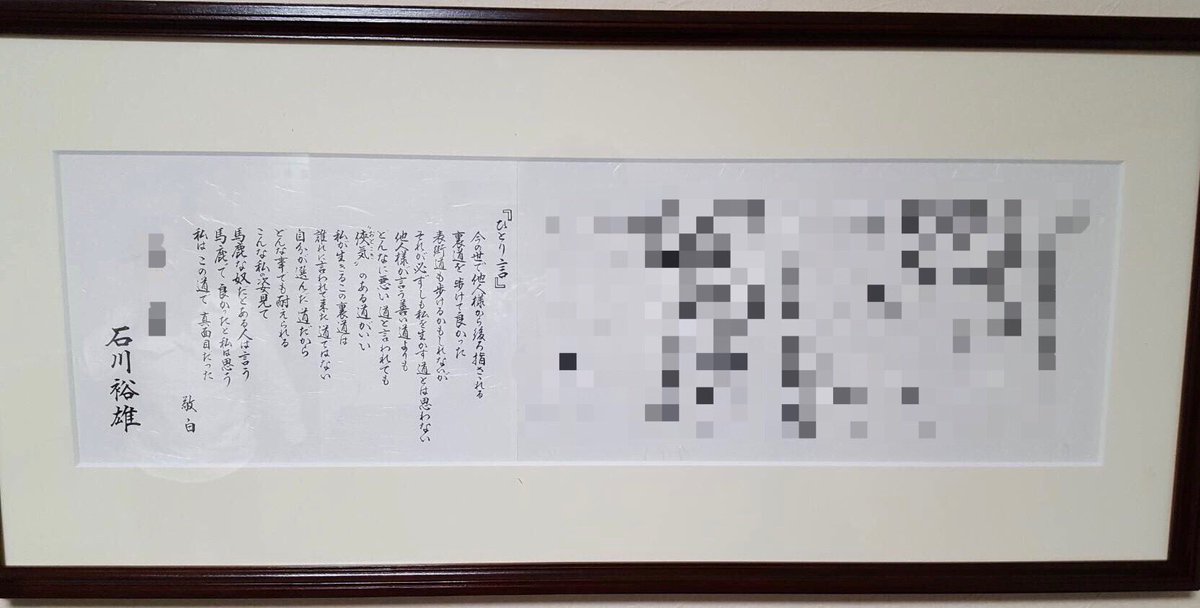 『ひとり言』
今の世で他人様から後ろ指される
裏道を歩けて良かった
表術道も歩けるかもしれないが
それが必ずしも私を生かす道とは思わない
他人様が言う善い道よりも
どんなに悪い道と言われても
“俠気”のある道がいい
おとこぎ
私が生きるこの裏道は
誰れに言われて来た道ではない
自分が選んだ道だから
どんな事でも耐えられる
こんな私の姿見て
馬鹿な奴だとある人は言う
馬鹿で良かったと私は思う
私はこの道で真面目だった
敬白
石川裕雄